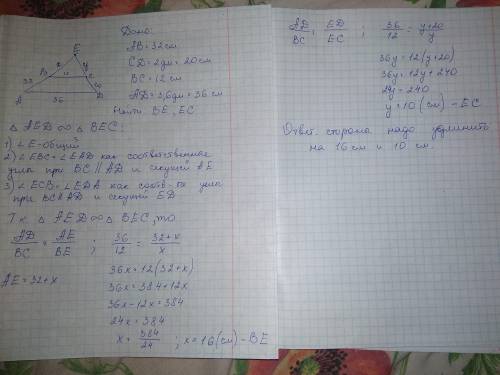 Дано:
AB = 32 см
CD = 2 дм = 20 см
BC = 12 см
AD = 3,6 дм = 36 см
Найти: BE, EC
E
x
y
B
12
C
32
20
A
36
D
△ AED ∞ △ BEC:
1) ∠E - общий
2) ∠EBC = ∠EAD как соответственные
углы при BC || AD и секущей AE
3) ∠ECB = ∠EDA как соотв-ые углы
при BC || AD и секущей ED
Т.к △ AED ∞ △ BEC, то
AD/BC = AE/BE ; 36/12 = 32+x/x
AE = 32+x
36x = 12(32+x)
36x = 384+12x
36x - 12x = 384
24x = 384
x = 384/24 ; x = 16 (см) - BE
AD/BC = ED/EC ; 36/12 = y+20/y
36y = 12(y+20)
36y = 12y + 240
24y = 240
y = 10 (см) - EC
Ответ: сторона надо удлинить
на 16 см и 10 см.